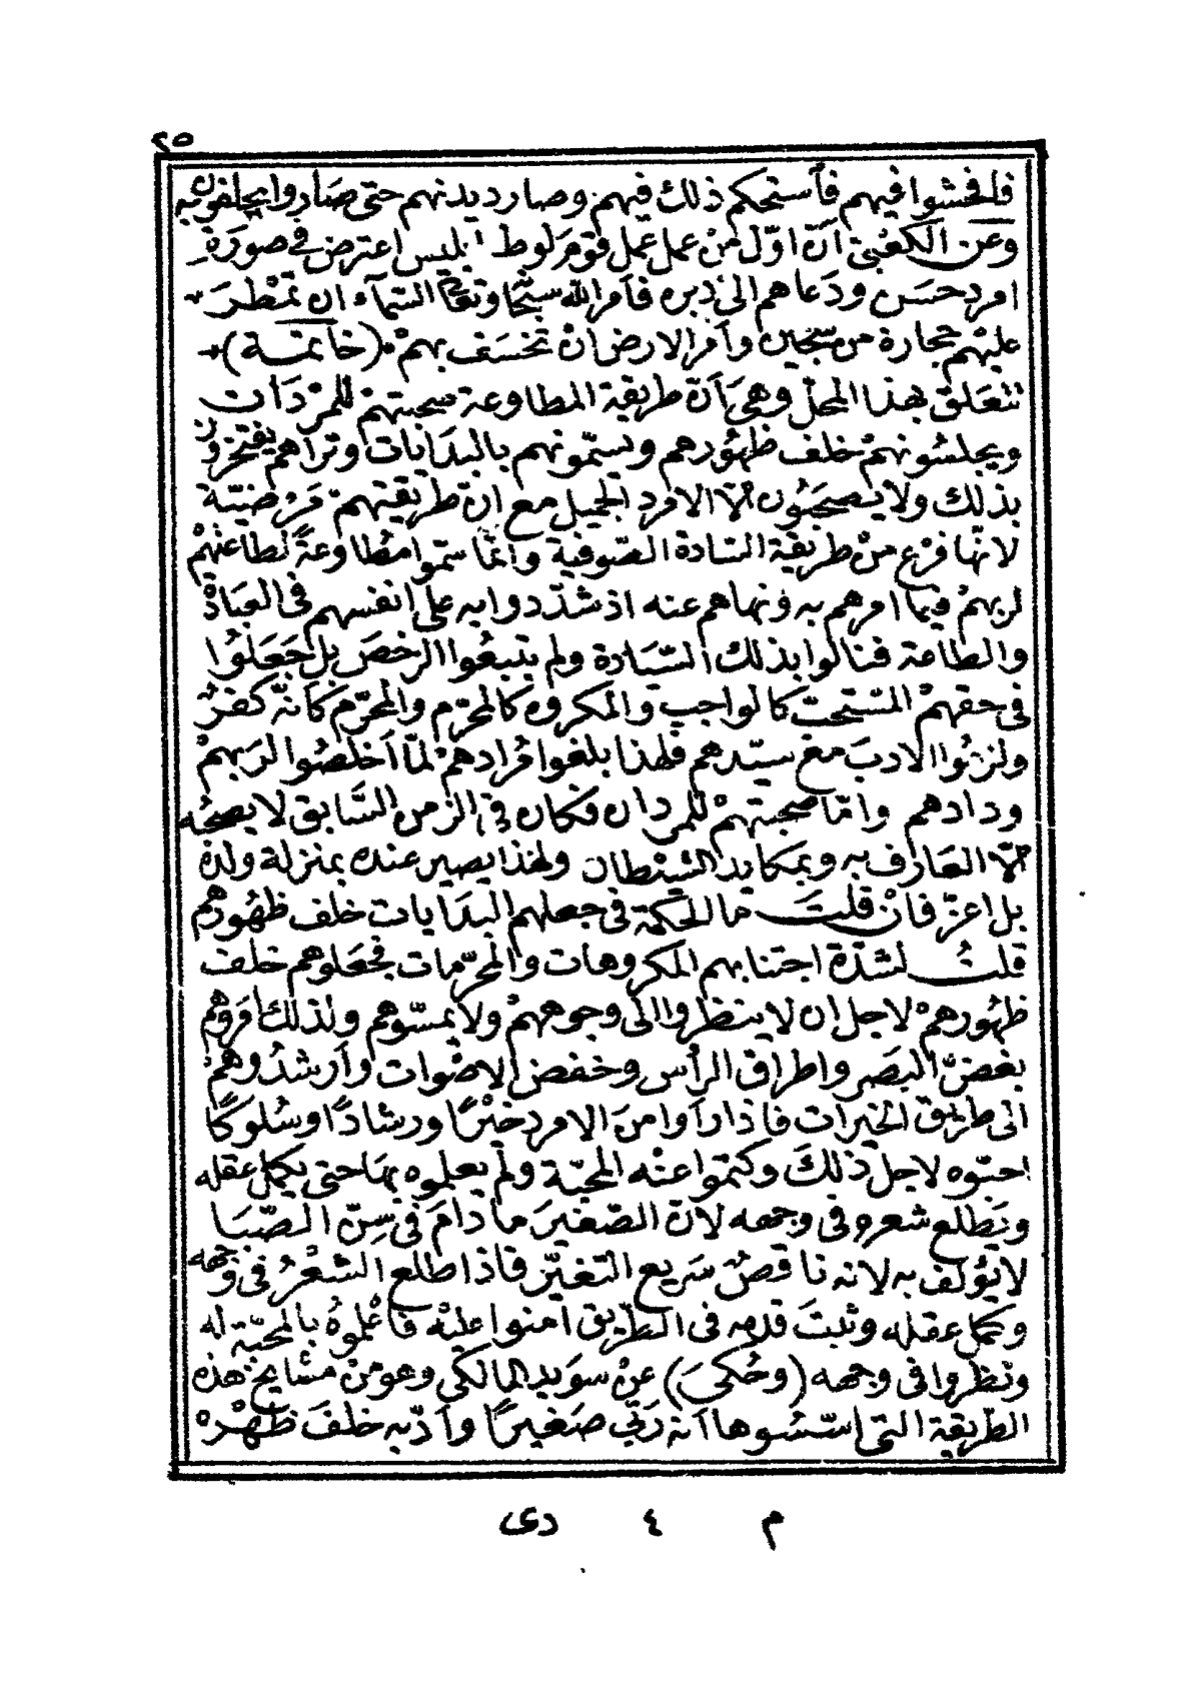 ٢٥
فلفحشوا فيهم فأستحكم ذلك فيهم وصار ديدنهم حتى صاروا يحلفون به
وعن الكعبى أنّ اوّل من عمل عمل قوم لوط ابليس اعترض في صورة
امرد حسن ودعاهم الى دبره فأمر الله سبحانه وتعالى السّمآء ان تمطر
عليهم حجارة من سجّيل وأمر الارض ان تخسف بهم (خاتمة)
تتعلق بهذا المحلّ وهى أنّ طريقة المطاوعة صحبتهم للمردان
ويجلسونهم خلف ظهورهم ويسمّونهم بالبدايات وتراهم يفتخرون
بذلك ولا يصحبون الّا الامرد الجميل مع انّ طريقتهم مرضيّة
لانّها فرع من طريقة السّادة الصّوفية وانّما سمّوا مطاوعة لطاعتهم
لربهم فيما امرهم به ونهاهم عنه اذ شدّدوا به على انفسهم فى العبادة
والطاعة فنالوا بذلك السّيادة ولم يتبعوا الرخص بل جعلوا
فى حقهم المستحبّ كالواجب والمكروه كالمحرّم والمحرّم كأنّه كفر
ولزموا الادب مع سيّدهم فلهذا بلغوا مرادهم لمّا أخلصوا لربهم
ودادهم وامّا صحبتهم للمردان فكان فى الزمن السّابق لا يصحبه
الّا العارف به وبمكايد الشيطان ولهذا يصير عنده بمنزلة ولده
بل اعزّ فان قلت ما الحكمة فى جعلهم البدايات خلف ظهورهم
قلت لشدّة اجتنابهم المكروهات والمحرّمات فجعلوهم خلف
ظهورهم لاجل ان لا ينظروا الى وجوههم ولا يمسّوهم ولذلك امروهم
بغضّ البصر واطراق الرأس وخفض الاصوات وأرشدوهم
الى طريق الخيرات فاذا رأوا من الامرد خيرًا ورشادًا وسلوكًا
احبّوه لاجل ذلك وكتموا عنه المحبّة ولم يعلموه بها حتى يكمل عقله
ويطلع شعره فى وجهه لانّ الصّغير ما دام فى سنّ الصّبا
لا يؤلف به لانه ناقص سريع التغيّر فاذا طلع الشعر فى وجهه
وكمل عقله وثبت قدمه فى الطّريق امنوا عليه فأعلموه بالمحبّة له
ونظروا فى وجهه (وحكى) عن سويد المالكى وهو من مشايخ هذه
الطّريقة التى اسّسوها أنه ربّي صغيرًا وأدّبه خلف ظهره
م ٤ دى